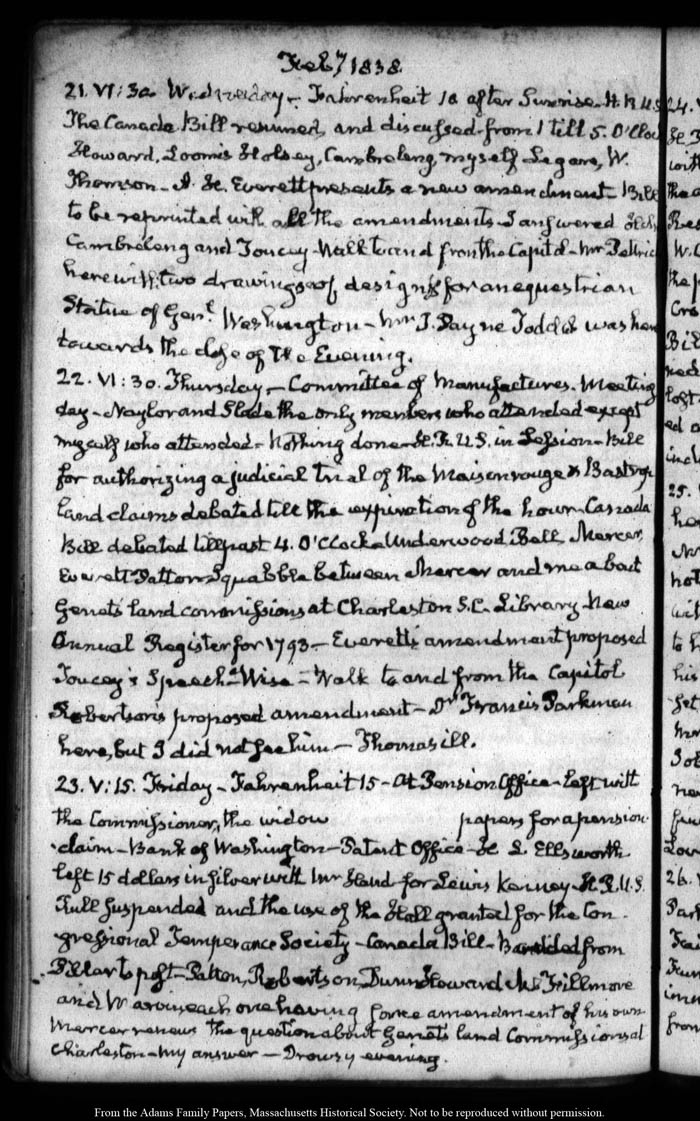 Feby 1838
21. VI:30. Wednesday – Fahrenheit 10 after Sunrise. H. R. U.S
The Canada Bill resumed, and discussed from 1 till 5. O'Cloc
Howard, Loomis, Holsey, Cambreleng, myself Legaré, W.
Thomson – A. H. Everett presents a new amendment – Bill
to be reprinted with all the amendments – I answered
Cambreleng and Toucey – Walk to and from the Capitol – Mr Pettric
here with two drawings of designs for an equestrian
Statue of Genl. Washington – Mr J. Payne Todd was here
towards the close of the Evening.
22. VI:30. Thursday. – Committee of Manufactures. Meeting
day – Naylor and Slade the only members who attended except
myself who attended – Nothing done – H. R. U.S. in Session – Bill
for authorizing a judicial trial of the Maison rouge & Bastrop
land claims debated till the expiration of the hour. Canada
Bill debated till past 4. O'Clock. Underwood Bell, Mercer,
Everett Patton Squabble between Mercer and me about
Genets land commissions at Charleston S.C. Library New
Annual Register for 1793 – Everett's amendment proposed
Toucey's Speech – Wise – Walk to and from the Capitol
Robertson's proposed amendment – Dr Francis Parkman
here, but I did not see him – Thomas ill.
23. V:15. Friday – Fahrenheit 15 – At Pension Office – left with
the Commissioner, the widow papers for a pension
claim – Bank of Washington – Patent Office – H. L. Ellsworth
left 15 dollars in silver with Mr Hand for Lewis Kenney – H. R. U.S.
Rule suspended and the use of the Hall granted for the Con-
gressional Temperance Society – Canada Bill – Bandied from
Pillar to post – Patton, Robertson, Dunn Howard Fillmore
and each one having some amendment of his own
Mercer renews the question about Genets land Commissions at
Charleston – my answer – Drowsy evening.
24.
25.
26.
From the Adams Family Papers, Massachusetts Historical Society. Not to be reproduced without permission.